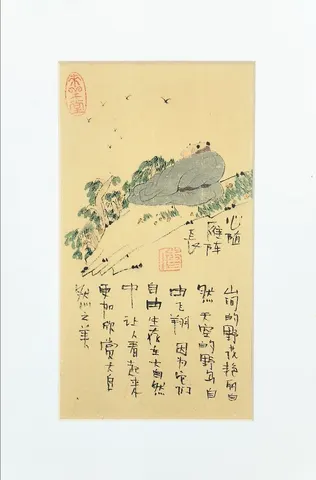 心随
雁阵
长
山间的野花艳丽自
然天空的野鸟自
由飞翔因为它们
自由生存在大自然
中让人看起来
更加欣赏大自
然之美